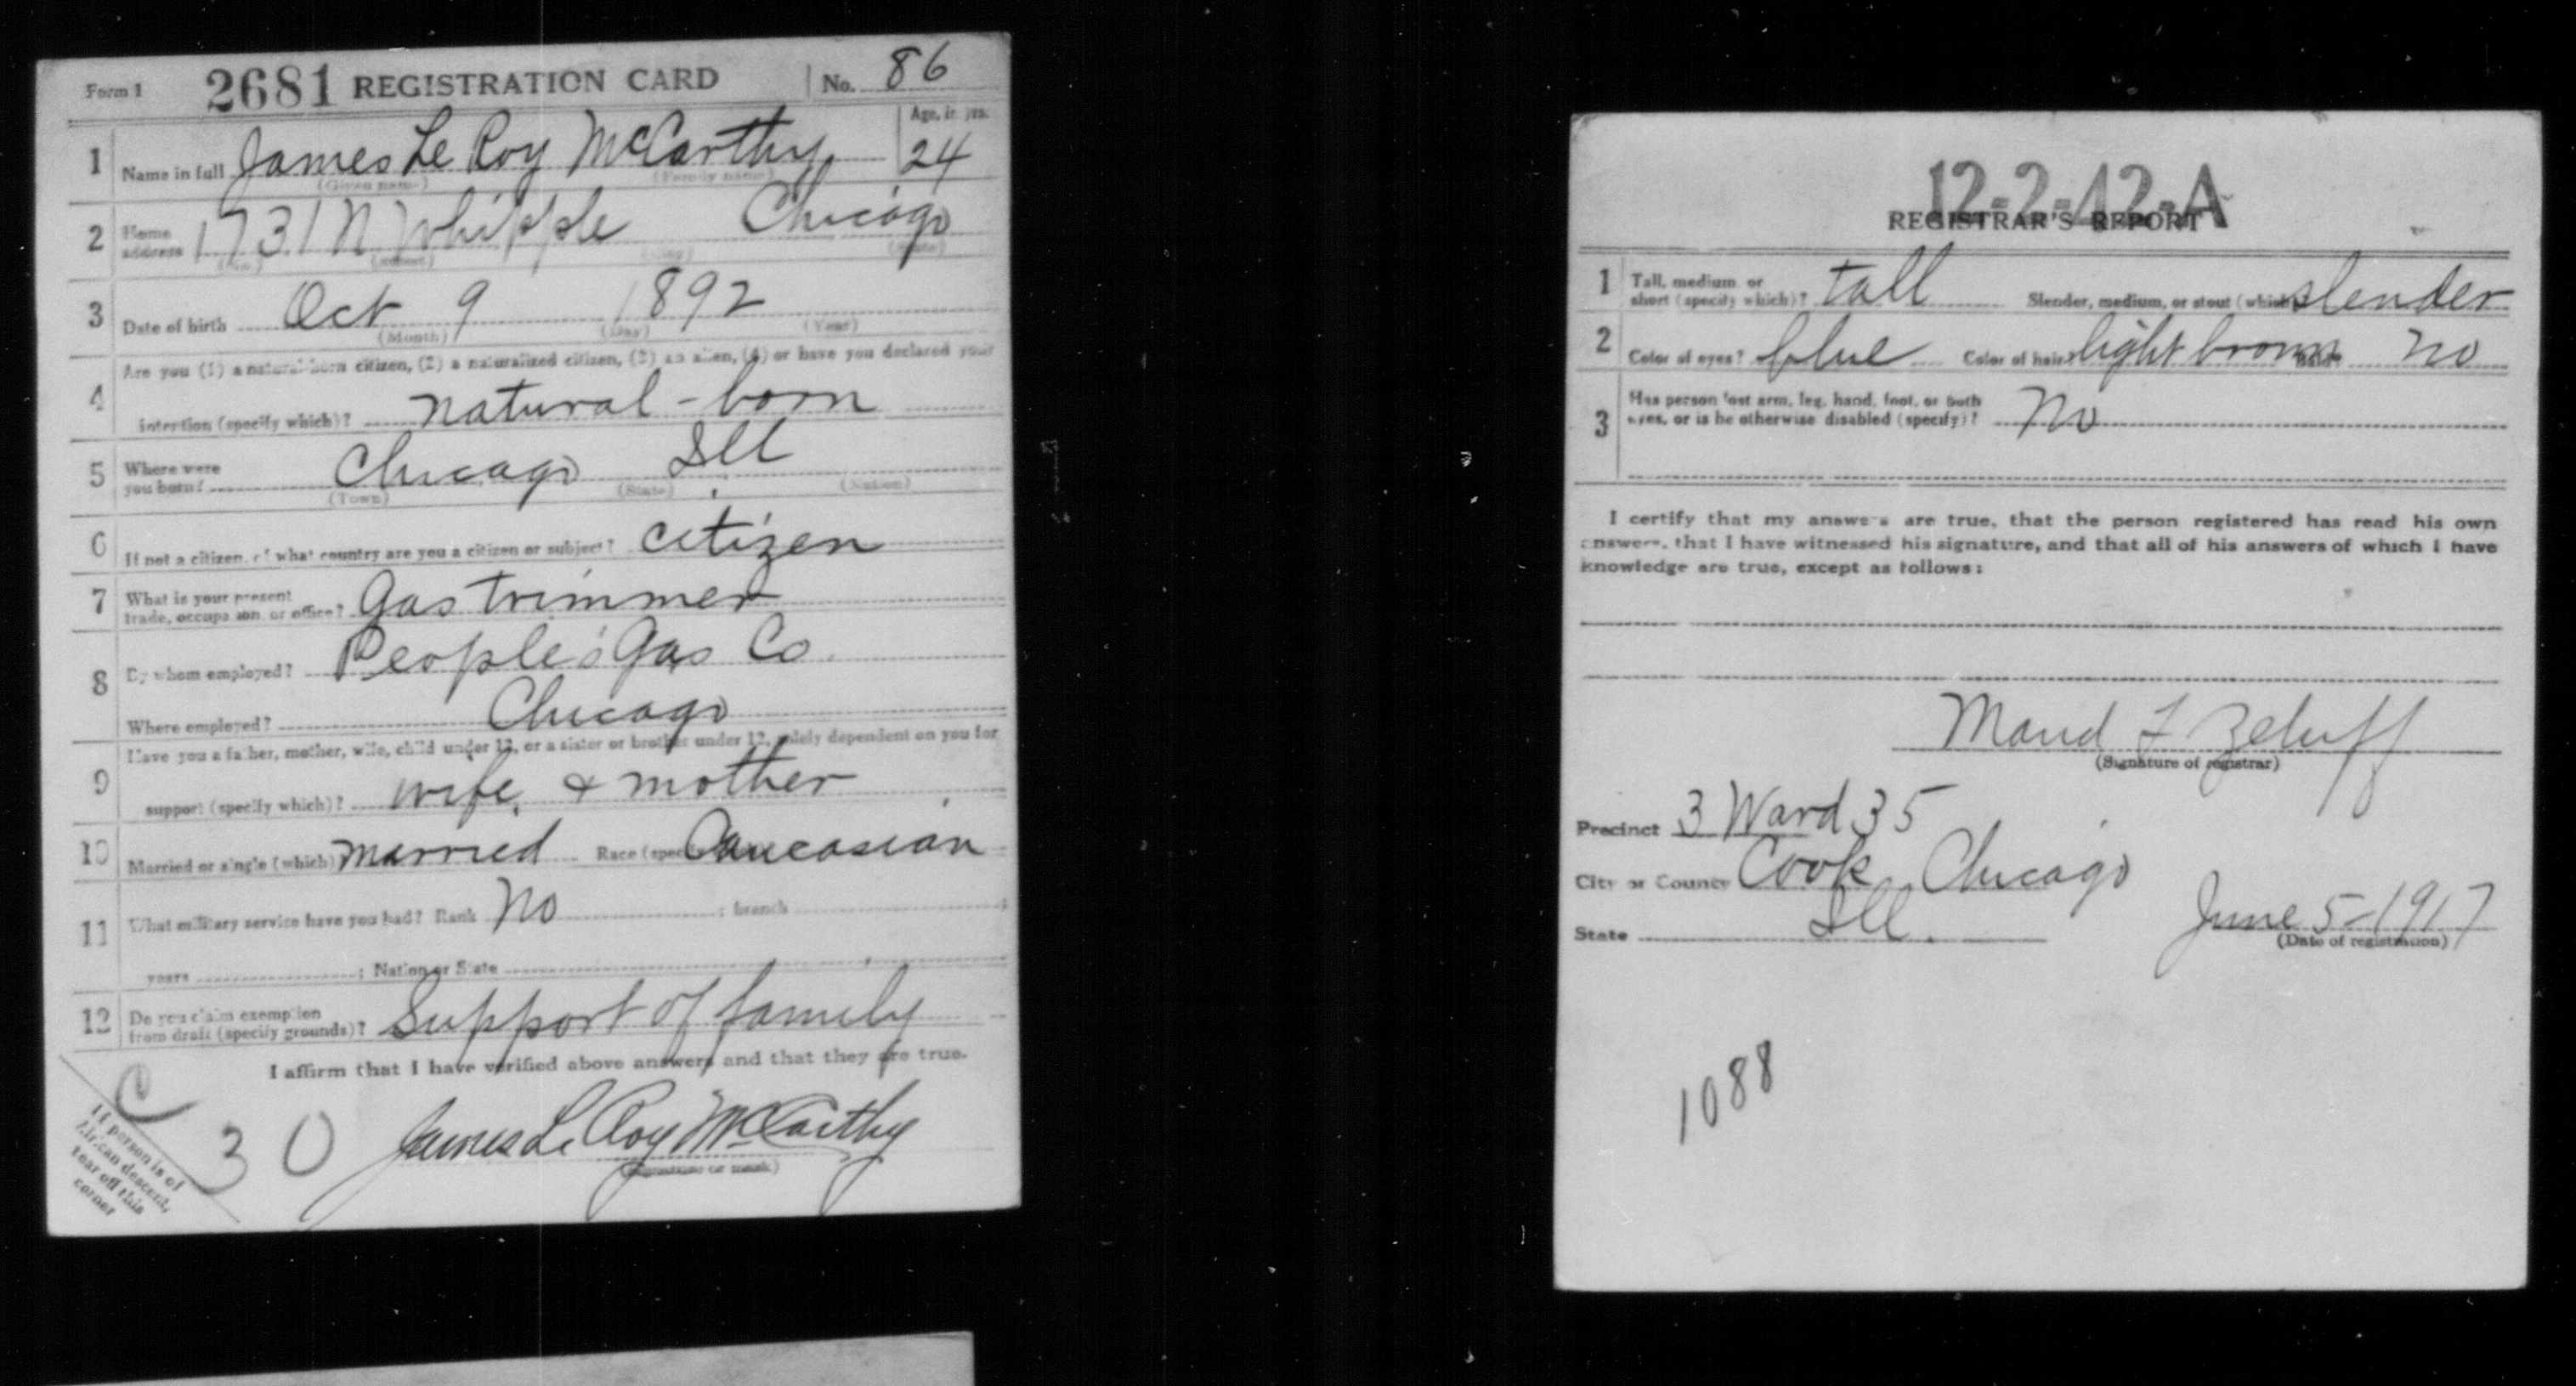 Form 1 2681 REGISTRATION CARD No. 86
1 Name in full James Le Roy McCarthy Age, in yrs. 24
(Given name) (Family name)
2 Home address 1731 N Whipple Chicago
(No.) (Street) (City) (State)
3 Date of birth Oct 9 1892
(Month) (Day) (Year)
4 Are you (1) a natural-born citizen, (2) a naturalized citizen, (3) an alien, (4) or have you declared your
intention (specify which)? natural-born
5 Where were you born? Chicago Ill
(Town) (State) (Nation)
6 If not a citizen, of what country are you a citizen or subject? citizen
7 What is your present trade, occupation, or office? Gas trimmer
8 By whom employed? People's Gas Co.
Where employed? Chicago
9 Have you a father, mother, wife, child under 12, or a sister or brother under 12, solely dependent on you for
support (specify which)? wife & mother
10 Married or single (which) married Race (specify Caucasian
11 What military service have you had? Rank No ; branch ;
years ; Nation or State
12 Do you claim exemption from draft (specify grounds)? Support of family
I affirm that I have verified above answers and that they are true.
C
30
James Le Roy McCarthy
(Signature or mark)
If person is of
African descent,
tear off this
corner
12-2-42-A
REGISTRAR'S REPORT
1 Tall, medium, or short (specify which)? tall Slender, medium, or stout (which slender
2 Color of eyes? blue Color of hair? light brown Bald? no
3 Has person lost arm, leg, hand, foot, or both
eyes, or is he otherwise disabled (specify)? No
I certify that my answers are true, that the person registered has read his own
answers, that I have witnessed his signature, and that all of his answers of which I have
knowledge are true, except as follows:
Maud F Zeluff
(Signature of registrar)
Precinct 3 Ward 35
City or County Cook Chicago
State Ill. June 5-1917
(Date of registration)
1088